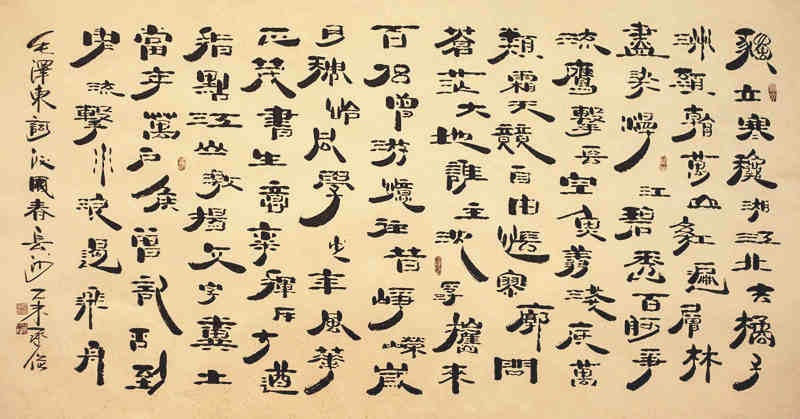 獨立寒穐湘江北去橘子
洲頭看萬山紅遍層林
盡染漫江碧透百舸爭
流鷹擊長空魚翔淺底萬
類霜天競自由悵寥廓問
蒼茫大地誰主沉浮攜來
百侶曾游憶往昔崢嶸歲
月稠恰同學少年風華
正茂書生意氣揮斥方遒
指點江山激揚文字糞土
當年萬戶侯曾記否到
中流擊水浪遏飛舟
毛澤東詞沁園春長沙乙未